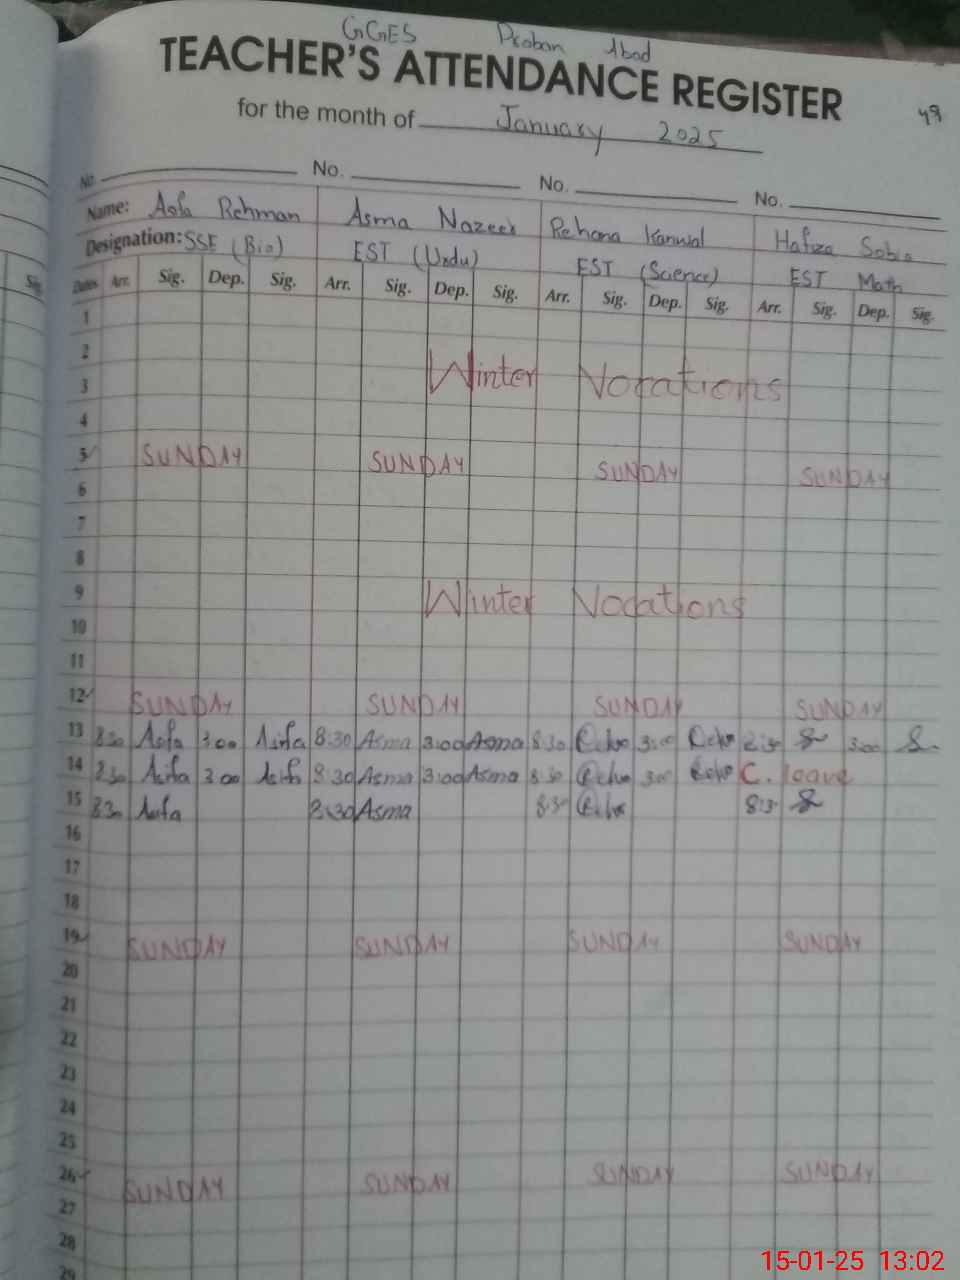 GGES Proban Abad
TEACHER'S ATTENDANCE REGISTER
for the month of January 2025
49
No. No. No. No.
Name: Asfa Rehman Asma Nazeer Rehana Kanwal Hafiza Sobia
Designation: SSE (Bio) EST (Urdu) EST (Science) EST Math
Dates Arr. Sig. Dep. Sig. Arr. Sig. Dep. Sig. Arr. Sig. Dep. Sig. Arr. Sig. Dep. Sig.
1
2
3 Winter Vocations
4
5 SUNDAY SUNDAY SUNDAY SUNDAY
6
7
8
9 Winter Vocations
10
11
12 SUNDAY SUNDAY SUNDAY SUNDAY
13 8:30 Asfa 3:00 Asifa 8:30 Asma 3:00 Asma 8:30 3:00 8:30 3:00
14 8:30 Asifa 3:00 Asifa 8:30 Asma 3:00 Asma 8:30 3:00 C. leave
15 8:30 Asifa 8:30 Asma 8:30 8:30
16
17
18
19 SUNDAY SUNDAY SUNDAY SUNDAY
20
21
22
23
24
25
26 SUNDAY SUNDAY SUNDAY SUNDAY
27
28
29
15-01-25 13:02